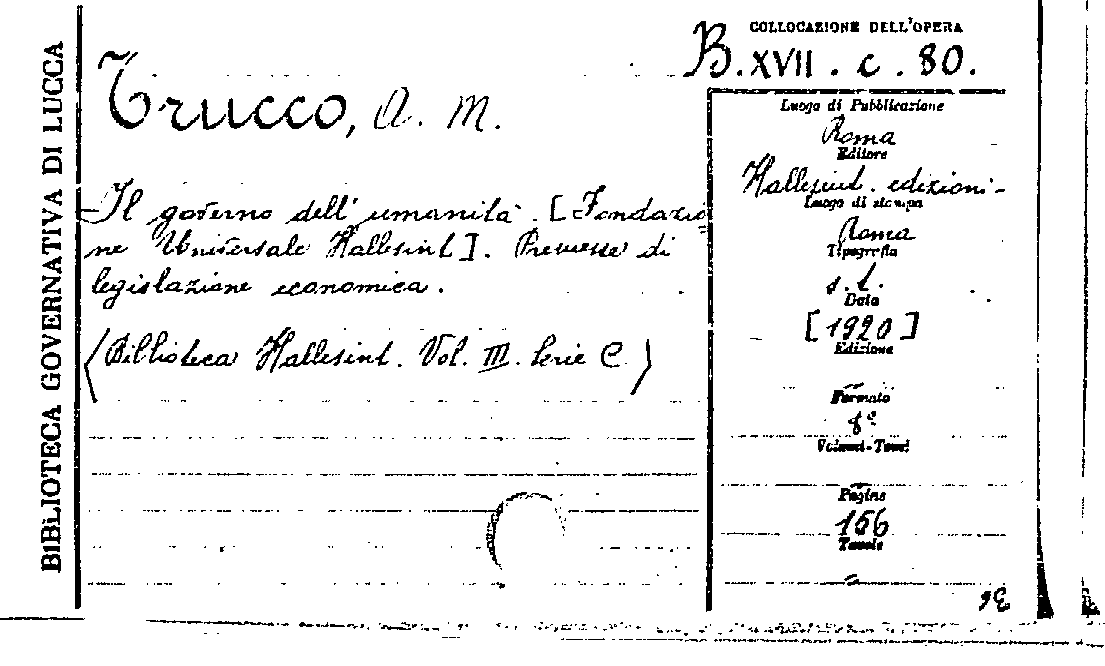 BIBLIOTECA GOVERNATIVA DI LUCCA
COLLOCAZIONE DELL'OPERA
B. XVII. c. 80.
Trucco, A. M.
Il governo dell'umanità. [Fondazio
ne Universale Hallesint]. Premesse di
legislazione economica.
(Biblioteca Hallesint. Vol. III. Serie C.)
Luogo di Pubblicazione
Roma
Editore
Hallesint. edizioni-
Luogo di stampa
Roma
Tipografia
s. t.
Data
[1920]
Edizione
Formato
8°
Volumi-Tomi
Pagine
156
Tavole